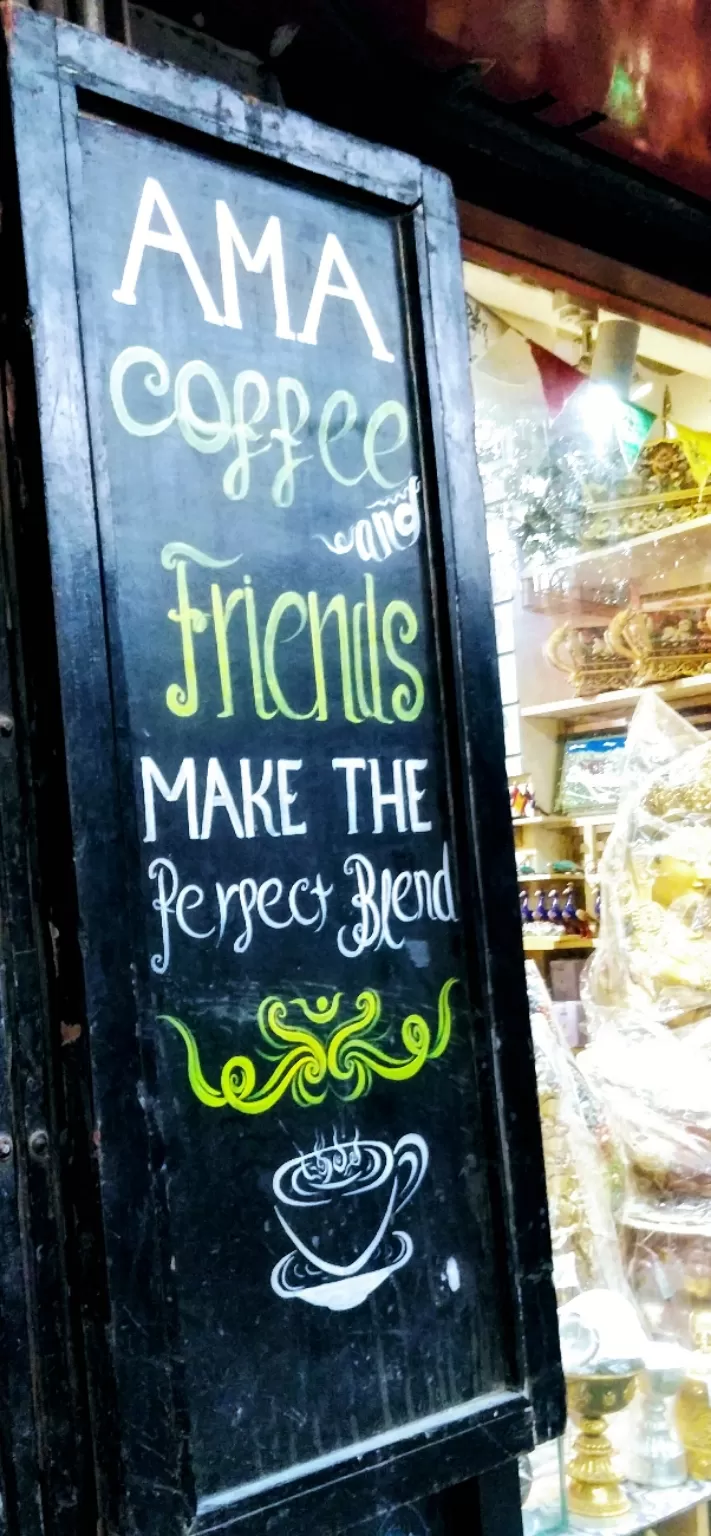 AMA
coffee
and
Friends
MAKE THE
Perfect Blend